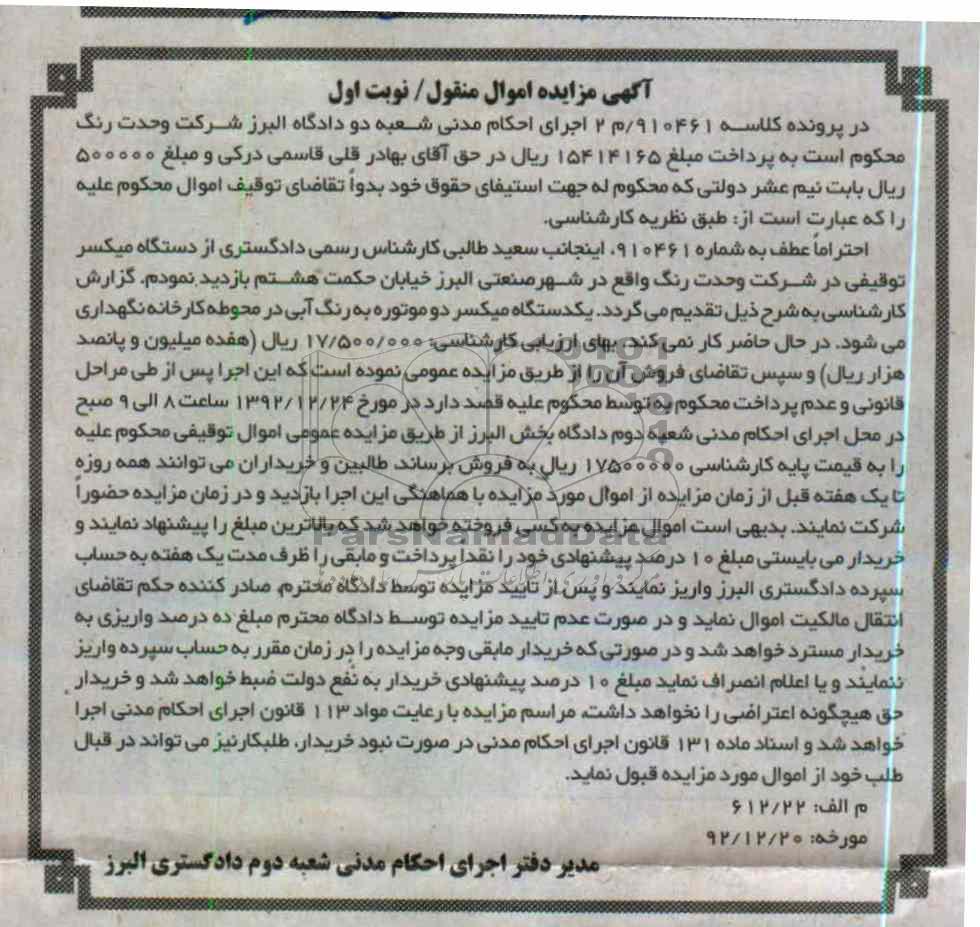 آگهی مزایده اموال منقول/ نوبت اول
در پرونده کلاسه ۹۱۰۴۶۱/م ۲ اجرای احکام مدنی شعبه دو دادگاه البرز شرکت وحدت رنگ
محکوم است به پرداخت مبلغ ۱۵۴۱۴۱۶۵ ریال در حق آقای بهادر قلی قاسمی درکی و مبلغ ۵۰۰۰۰۰
ریال بابت نیم عشر دولتی که محکوم له جهت استیفای حقوق خود بدواً تقاضای توقیف اموال محکوم علیه
را که عبارت است از: طبق نظریه کارشناسی.
احتراماً عطف به شماره ۹۱۰۴۶۱، اینجانب سعید طالبی کارشناس رسمی دادگستری از دستگاه میکسر
توقیفی در شرکت وحدت رنگ واقع در شهرصنعتی البرز خیابان حکمت هشتم بازدید نمودم. گزارش
کارشناسی به شرح ذیل تقدیم می گردد. یکدستگاه میکسر دو موتوره به رنگ آبی در محوطه کارخانه نگهداری
می شود. در حال حاضر کار نمی کند. بهای ارزیابی کارشناسی: ۱۷/۵۰۰/۰۰۰ ریال (هفده میلیون و پانصد
هزار ریال) و سپس تقاضای فروش آن را از طریق مزایده عمومی نموده است که این اجرا پس از طی مراحل
قانونی و عدم پرداخت محکوم به توسط محکوم علیه قصد دارد در مورخ ۱۳۹۲/۱۲/۲۴ ساعت ۸ الی ۹ صبح
در محل اجرای احکام مدنی شعبه دوم دادگاه بخش البرز از طریق مزایده عمومی اموال توقیفی محکوم علیه
را به قیمت پایه کارشناسی ۱۷۵۰۰۰۰۰ ریال به فروش برساند. طالبین و خریداران می توانند همه روزه
تا یک هفته قبل از زمان مزایده از اموال مورد مزایده با هماهنگی این اجرا بازدید و در زمان مزایده حضوراً
شرکت نمایند. بدیهی است اموال مزایده به کسی فروخته خواهد شد که بالاترین مبلغ را پیشنهاد نمایند و
خریدار می بایستی مبلغ ۱۰ درصد پیشنهادی خود را نقدا پرداخت و مابقی را ظرف مدت یک هفته به حساب
سپرده دادگستری البرز واریز نمایند و پس از تایید مزایده توسط دادگاه محترم صادر کننده حکم تقاضای
انتقال مالکیت اموال نماید و در صورت عدم تایید مزایده توسط دادگاه محترم مبلغ ده درصد واریزی به
خریدار مسترد خواهد شد و در صورتی که خریدار مابقی وجه مزایده را در زمان مقرر به حساب سپرده واریز
ننمایند و یا اعلام انصراف نماید مبلغ ۱۰ درصد پیشنهادی خریدار به نفع دولت ضبط خواهد شد و خریدار
حق هیچگونه اعتراضی را نخواهد داشت. مراسم مزایده با رعایت مواد ۱۱۳ قانون اجرای احکام مدنی اجرا
خواهد شد و اسناد ماده ۱۳۱ قانون اجرای احکام مدنی در صورت نبود خریدار، طلبکار نیز می تواند در قبال
طلب خود از اموال مورد مزایده قبول نماید.
م الف: ۶۱۲/۲۲
مورخه: ۹۲/۱۲/۲۰
مدیر دفتر اجرای احکام مدنی شعبه دوم دادگستری البرز
ParsNamadData